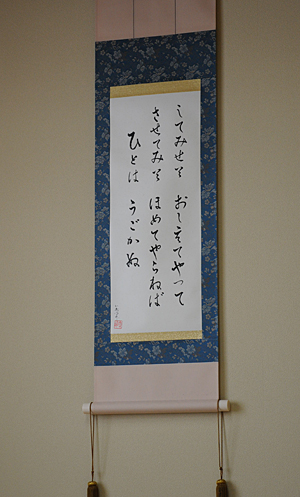 してみせて おしえてやって
させてみて ほめてやらねば
ひとは うごかぬ